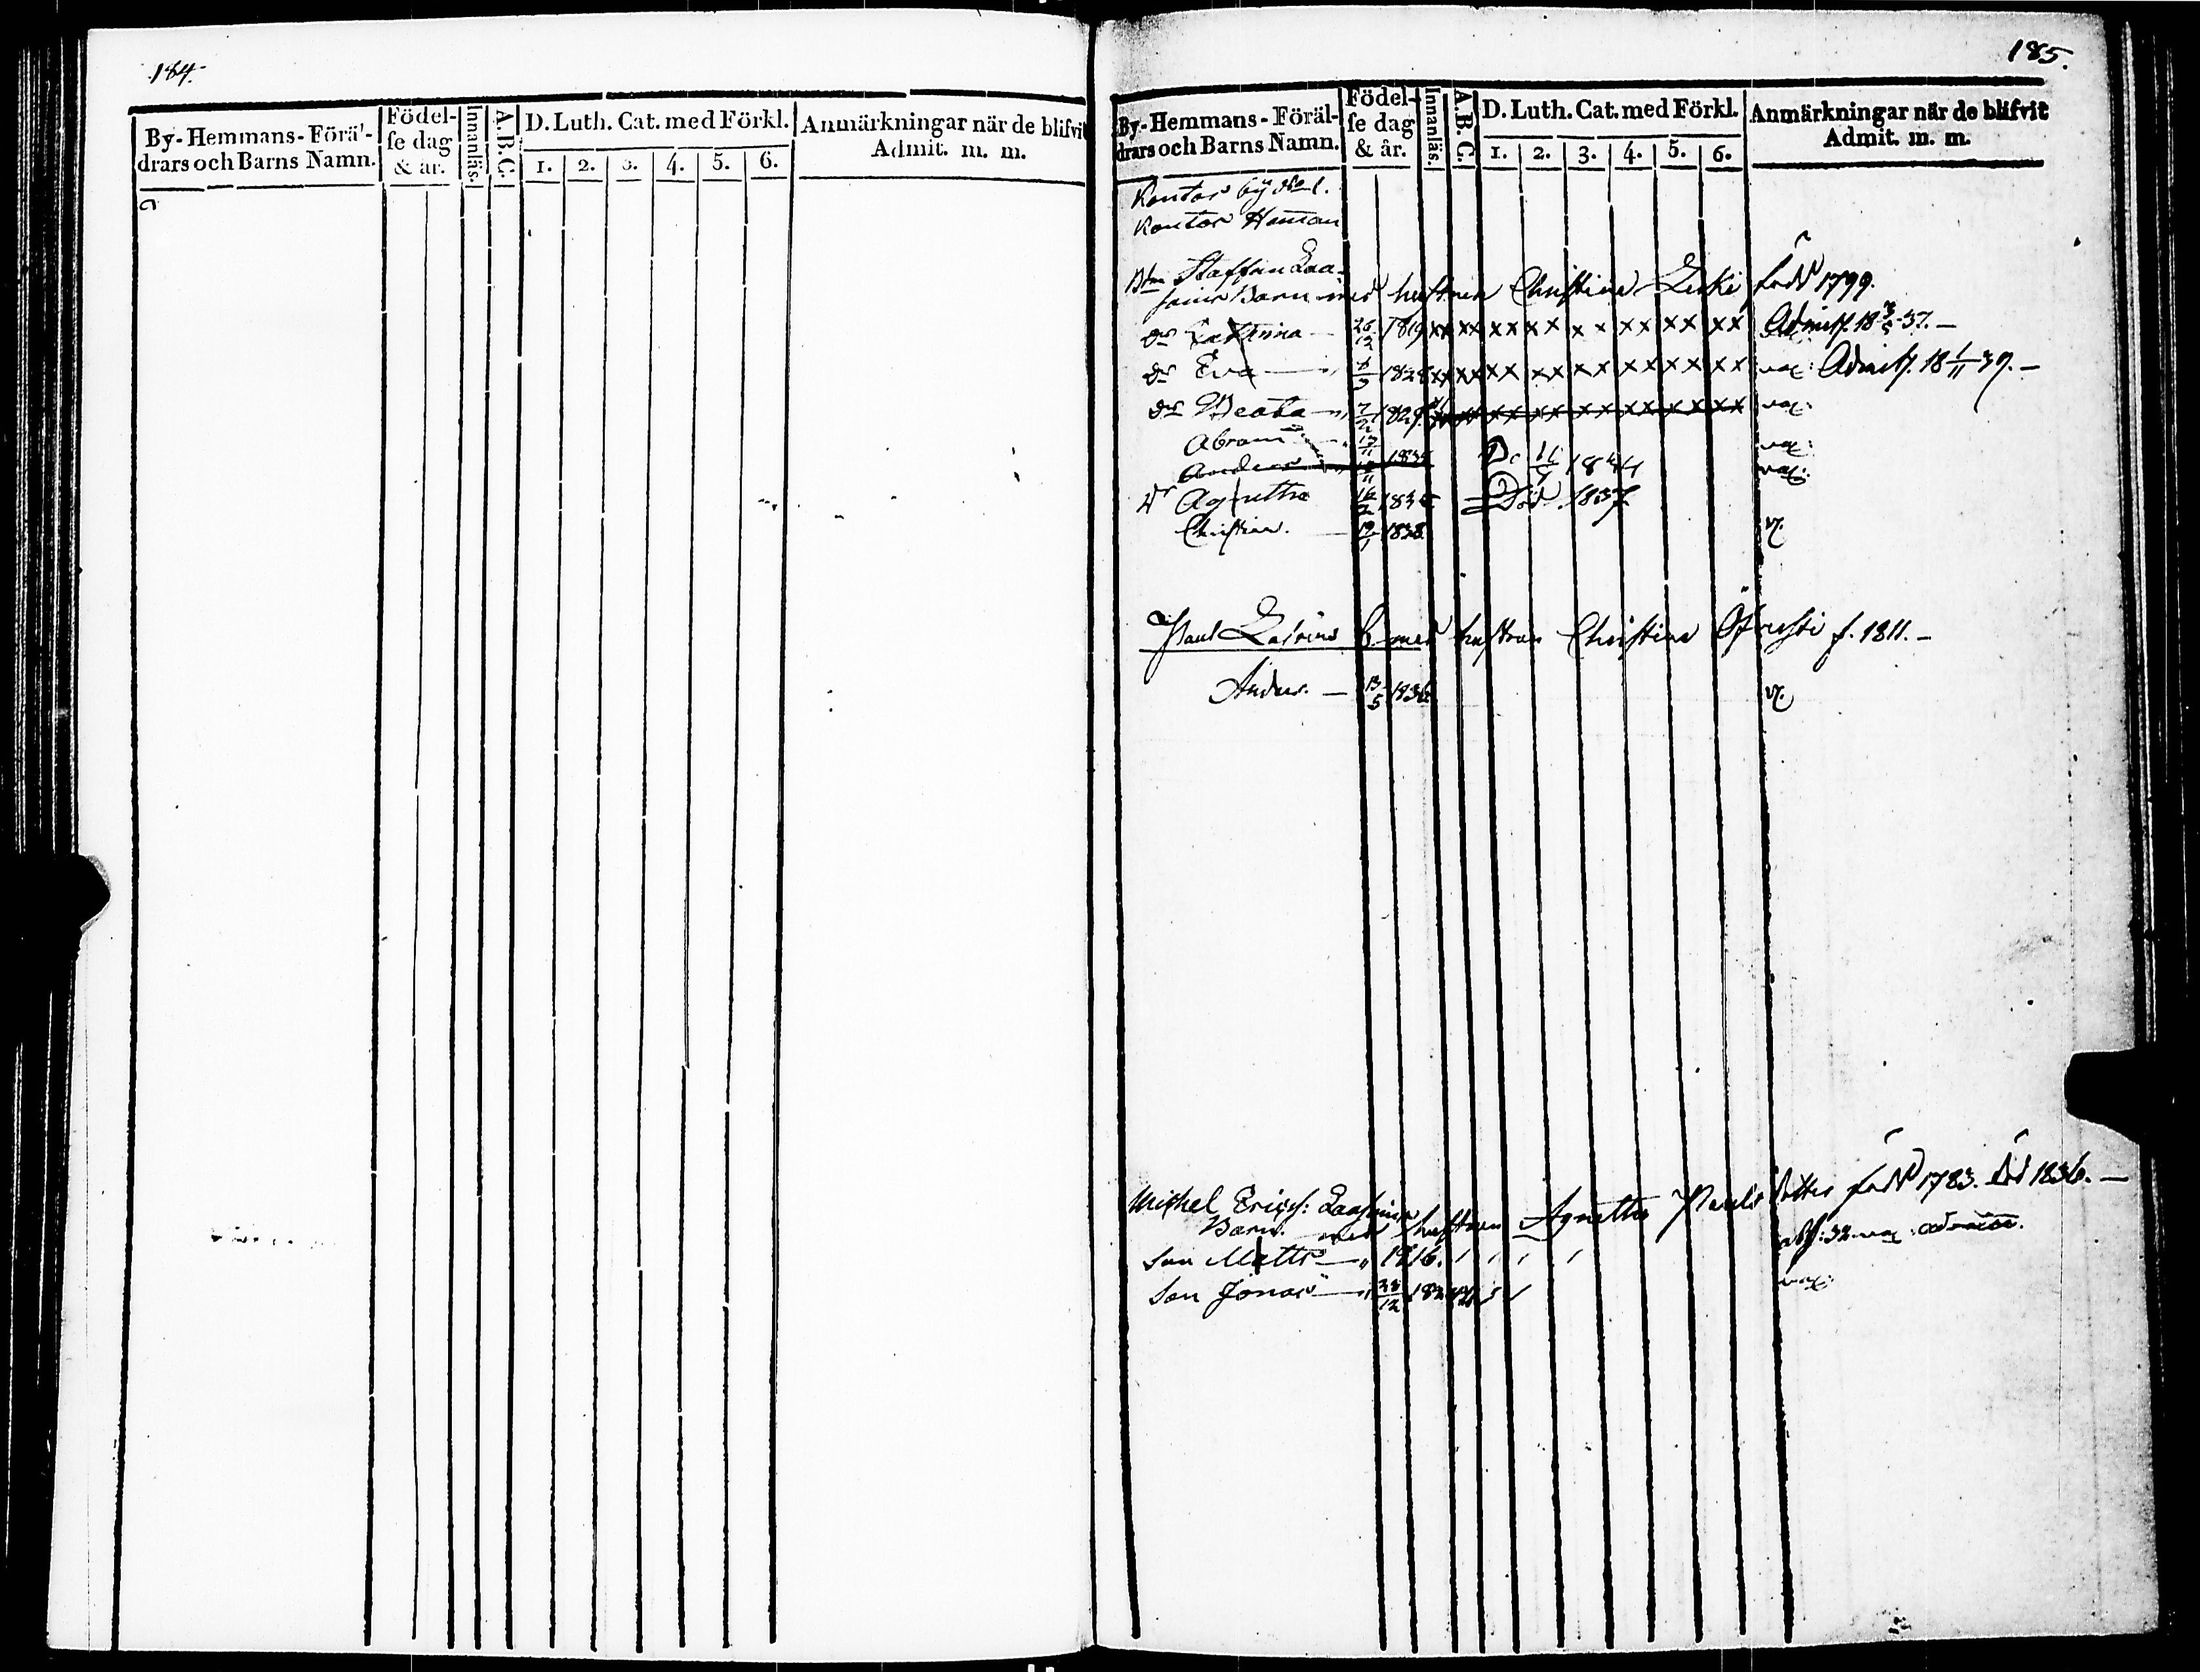 184.
By-Hemmans-Förä'-
drars och Barns Namn.
Födel-
se dag
& år.
Innanläs.
A.B.C.
D. Luth. Cat. med Förkl.
1. 2. 3. 4. 5. 6.
Anmärkningar när de blifvit
Admit. m. m.
185.
By-Hemmans-Föräl-
drars och Barns Namn.
Födel-
se dag
& år.
Innanläs.
A.B.C.
D. Luth. Cat. med Förkl.
1. 2. 3. 4. 5. 6.
Anmärkningar när de blifvit
Admit. m. m.
Kontos by No 1.
Kontos Heman
Staffan Laa-
Barn med hustrun Christina född 1799.
dr Cathrina 26/12 1819 xx xx xx xx x x xx xx xx 37.
dr Eva 1828 xx xx xx xx xx xx xx xx vax: 18 1/11 39.
dr Beata 7/2 182 xx xx xx xx xx xx xx xx vax:
Abram vax:
Anders 1844 vax:
dr Agnetha 16/2 183 Död 1837
Christina 19/1 1838 v.
Paul B. med hustrun Christina f. 1811.
Anders 13/5 1836 v.
Michel Ericss:
Barn. med hustrun Agnetha Pauls dotter född 1783. död 1836.
Son Matts 1816. 32 vax:
Son Jonas 28/12 182 vax: